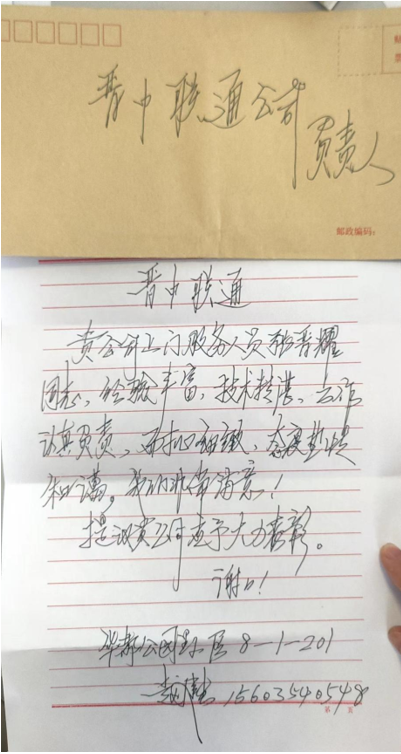 晋中联通公司
负责人
邮政编码:
晋中联通
贵公司上门服务人员张晋耀
同志、经验丰富,技术精湛、工作
认真负责、耐心细致、态度热情
和谒。我们非常满意!
提议贵公司应予大力表彰。
谢谢!
华都公园 8-1-201
15603540548
第 页